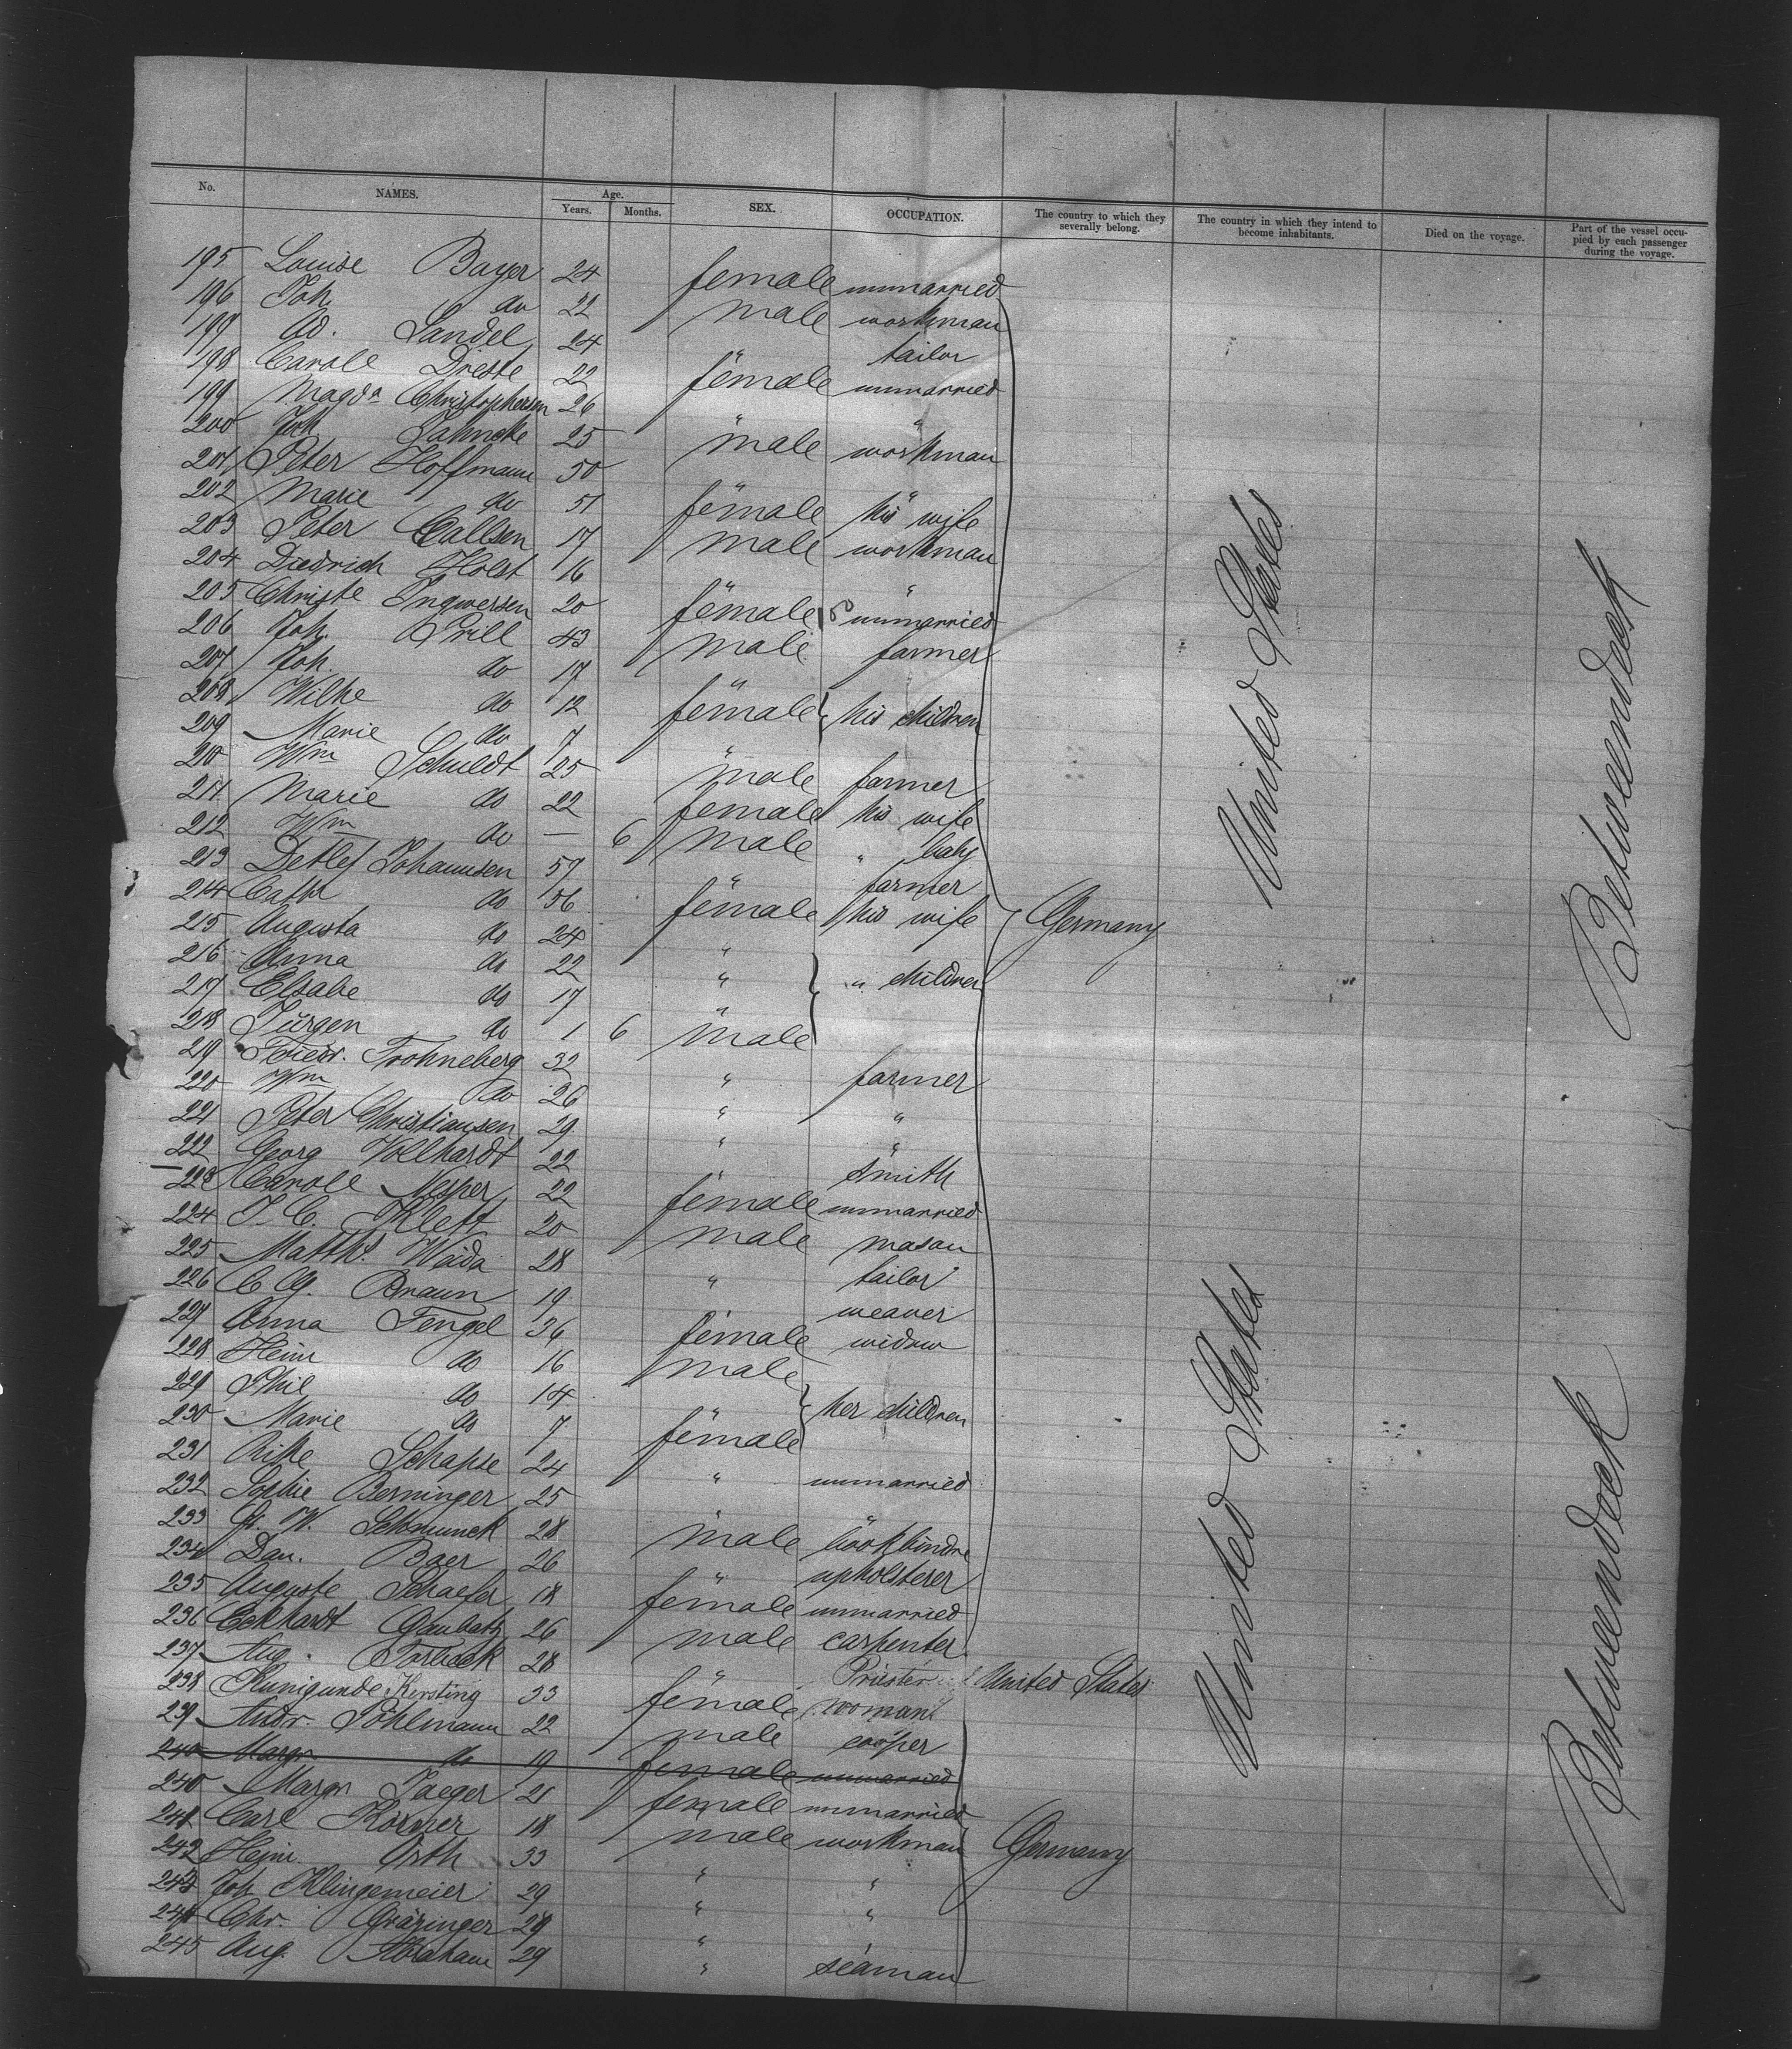 No. NAMES. Age. Years. Months. SEX. OCCUPATION. The country to which they severally belong. The country in which they intend to become inhabitants. Died on the voyage. Part of the vessel occupied by each passenger during the voyage.
195 Louise Bayer 24 female unmarried
196 Joh do 22 male workman
197 Ad. Sandel 24 " tailor
198 Carole Dreste 22 female unmarried
199 Magda Christophersen 26 " "
200 Joh Jahncke 25 male workman
201 Peter Hoffmann 50 " "
202 Marie do 51 female his wife
203 Peter Callsen 17 male workman
204 Diedrich Holst 16 " "
205 Christe Ingwersen 20 female unmarried
206 Joh. Prill 43 male farmer
207 Joh. do 17 "
208 Wilhe do 12 female his children
209 Marie do 7 "
210 Wm Schuldt 25 male farmer
211 Marie do 22 female his wife
212 Wm do — 6 male " baby
213 Detlef Johannsen 57 " farmer
214 Cathr do 56 female his wife
Germany
United States
Betweendeck
215 Augusta do 24 "
216 Anna do 22 " " children
217 Elsabe do 17 "
218 Jürgen do 1 6 male
219 Friedr. Frohneberg 32 " farmer
220 Wm do 26 " "
221 Peter Christiansen 29 " "
222 Georg Vollhardt 22 smith
223 Carole Vesper 22 female unmarried
224 J. C. Kleff 20 male mason
225 Matths. Waida 28 " tailor
226 C. G. Braun 19 " weaver
227 Anna Fengel 36 female widow
228 Heinr do 16 male
229 Phil do 14 " her children
230 Marie do 7 female
231 Rike Schapse 24 " unmarried
232 Sophie Berninger 25 " "
233 G. W. Schmunck 28 male bookbinder
234 Dan. Baer 26 " upholsterer
235 Auguste Schaefer 18 female unmarried
236 Eckhardt Gaubatz 26 male carpenter
237 Aug. Torbeck 28 " Priester United States
238 Kunigunde Kersting 33 female woman
239 Andr. Pöhlmann 22 male cooper
240 Margr do 19 female unmarried
240 Margr Jaeger 21 female unmarried
241 Carl Körner 18 male workman
242 Heinr Orth 33 " "
243 Joh Klingemeier 29 " "
244 Chr. Gräzinger 28 " "
245 Aug. Abraham 29 " seaman
Germany
United States
Betweendeck